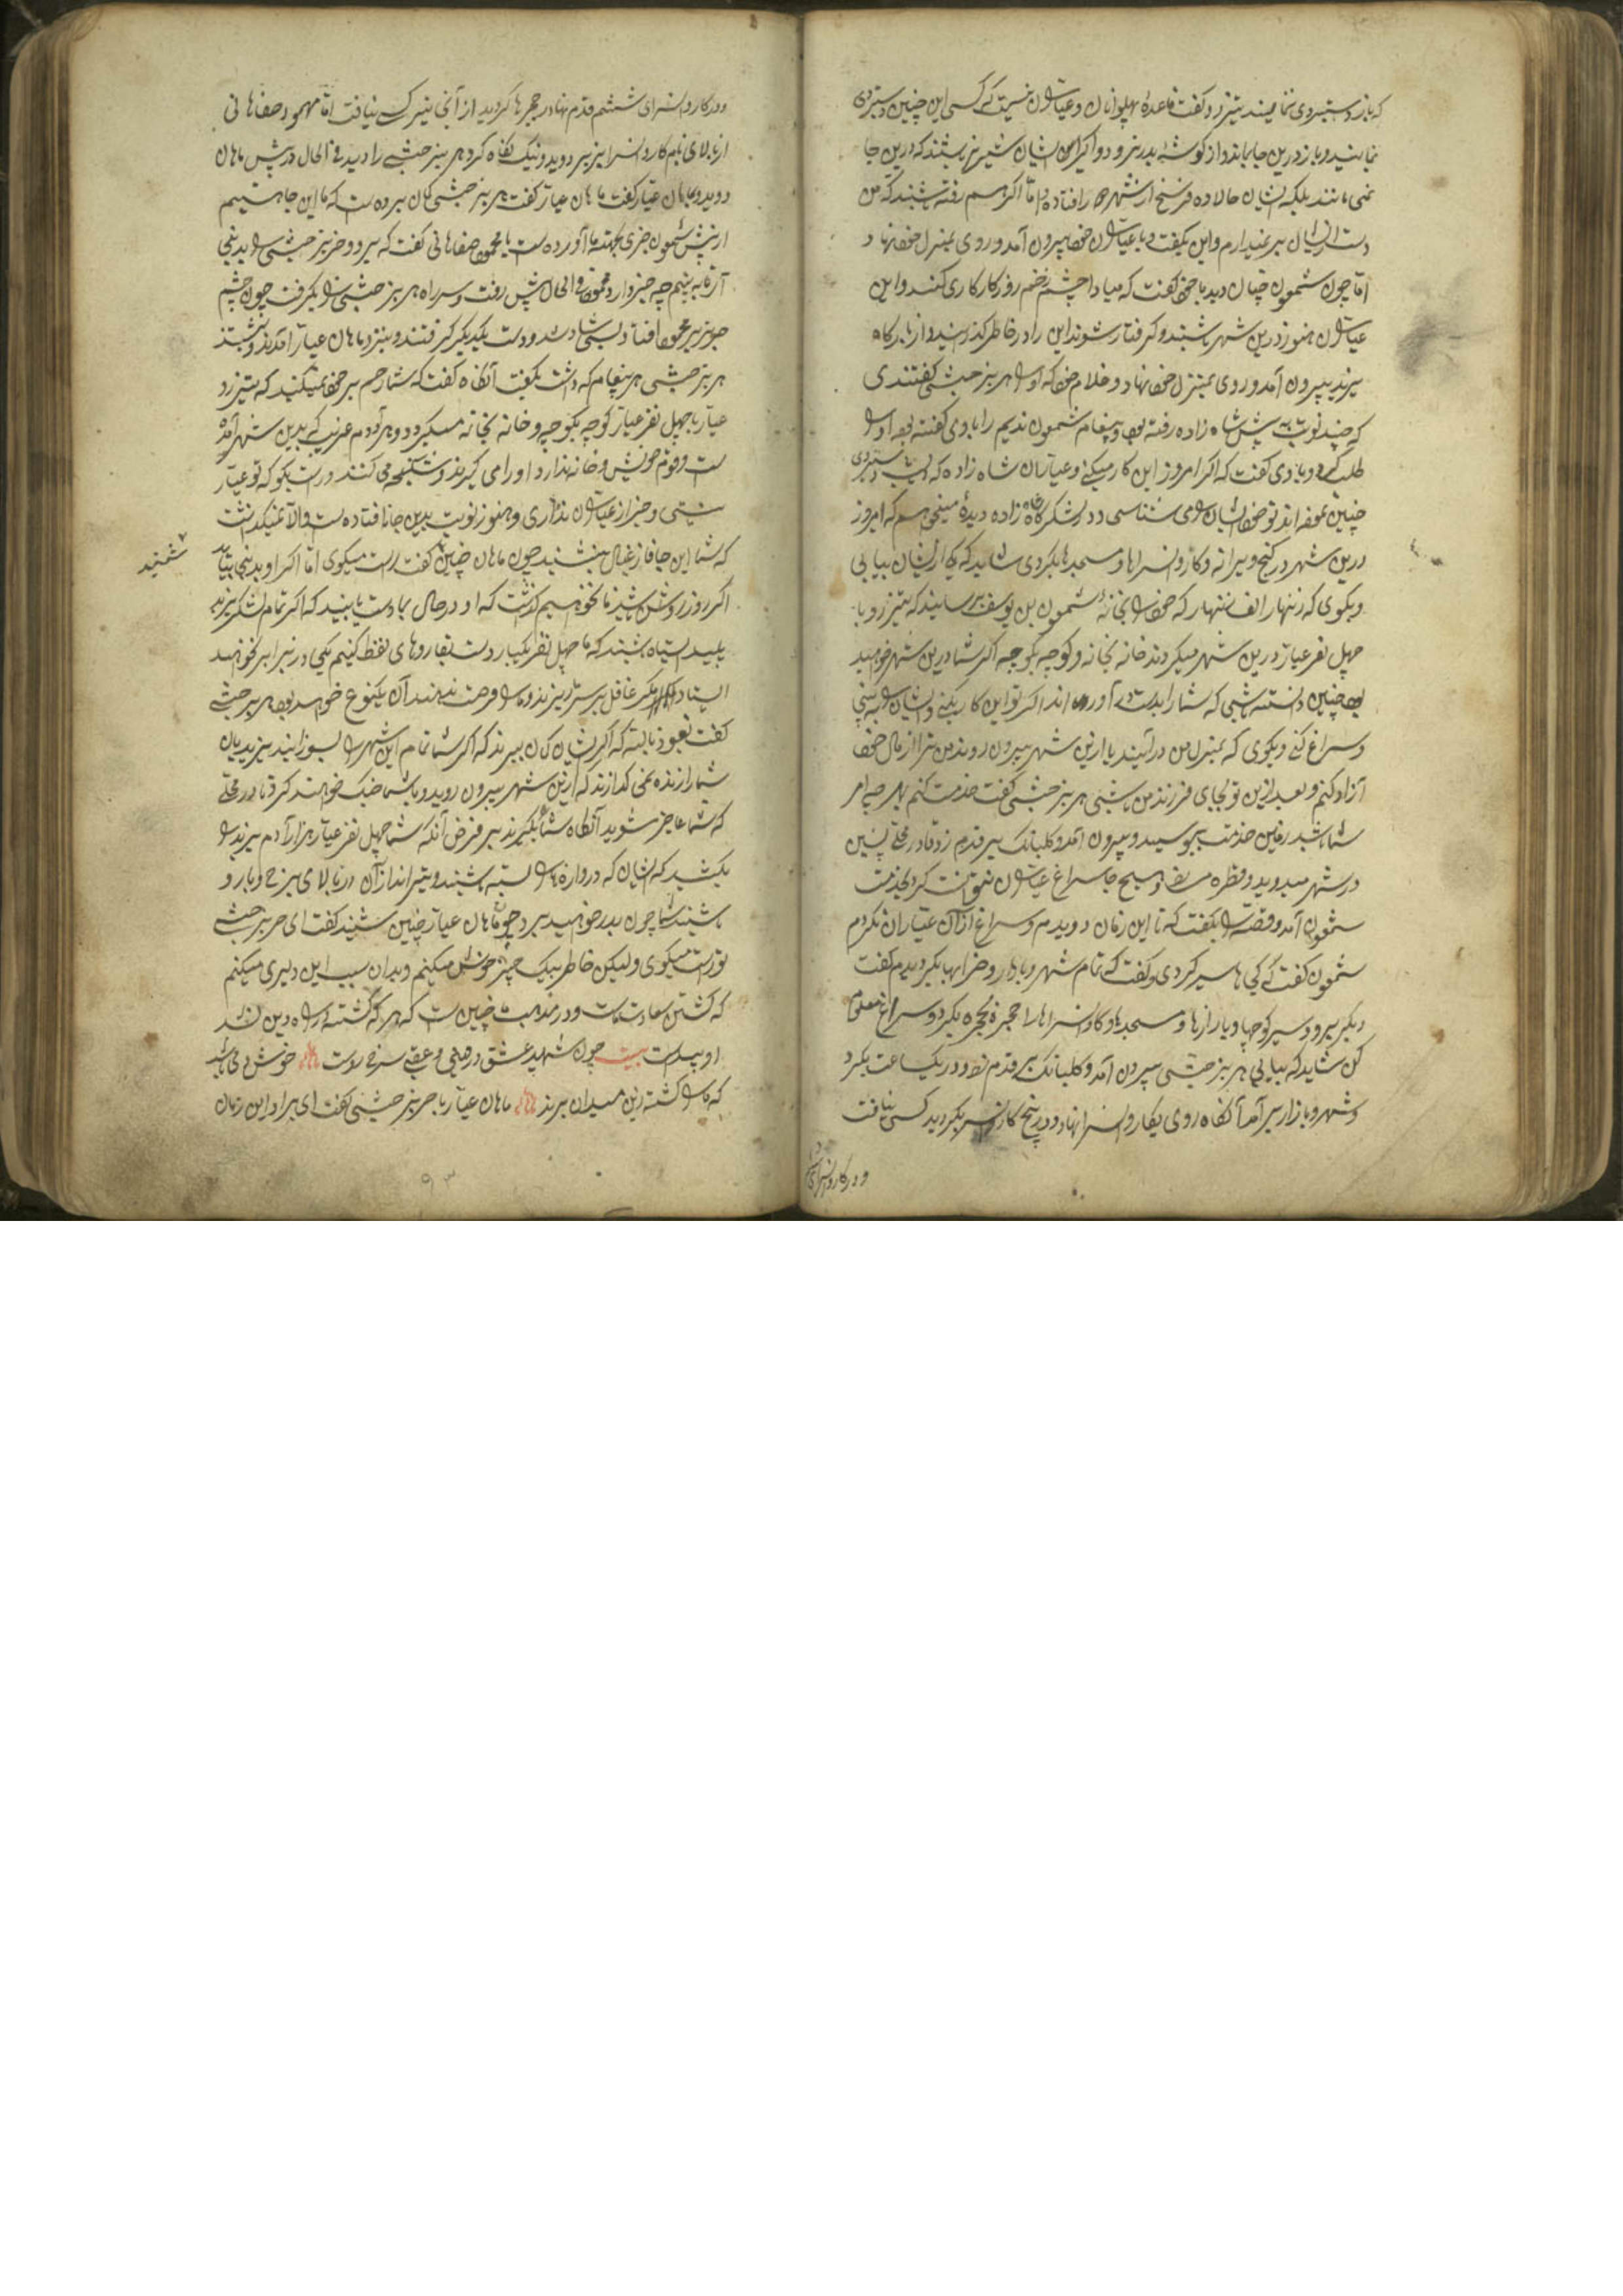 که باز دستبردی نمایند تیزرو گفت قاعدهٔ پهلوانان و عیاران نیست که کسی این چنین دستبردی
نمایند و باز درین جا بماند و از گوشه بدر نرود و اگر ایشان شیر نر باشند که درین جا
نمی مانند بلکه ایشان حالا ده فرسنخ از شهر افتاده اما اگر هم رفته باشند که من
دست از ایشان بر نمیدارم و این بگفت و با عیاران خود بیرون آمد و روی بمنزل خود نهاد
اما چون شمعون چنان دید با خود گفت که مبادا چشم زخم روزگار کاری کند و این
عیاران هنوز درین شهر باشند و گرفتار شوند این را در خاطر گذرانید و از بارگاه
یزید بیرون آمد و روی بمنزل خود نهاد و غلام خود که او را هربز حبشی گفتندی
که چند نوبت پیش شاه زاده رفته بود و پیغام شمعون ندیم را با وی گفته بود او را
طلب کرد و با وی گفت که اگر امروز این کار میکنی و عیاران شاه زاده که دستبردی
چنین نموده اند تو خود ایشان را می شناسی و در لشکرگاه شاه زاده دیدهٔ میخواهم که امروز
درین شهر در کنج ویرانه و کاروانسراها و مسجدها بگردی شاید که یکی از ایشان بیابی
و بگوی که زنهار الف زنهار که خود را بخانهٔ شمعون بن یوسف برسانید که تیزرو با
چهل نفر عیار درین شهر میگردند خانه بخانه و کوچه بکوچه اگر شما درین شهر خواهید
بود چنین دانسته باشی که شما را بدست در آورده اند اگر تو این کار بکنی و ایشان را به بینی
و سراغ کنی و بگوی که بمنزل من درآیند یا ازین شهر بیرون روند من ترا از مال خود
آزاد کنم و بعد ازین تو بجای فرزند من باشی هربز حبشی گفت خدمت کنم بهر چه امر
شما باشد زمین خدمت ببوسید و بیرون آمد و کلبانک بر قدم زد تا در محلهٔ پسین
در شهر میدوید و قطره میزد و هیچ جا سراغ عیاران نتوانست کرد بخدمت
شمعون آمد و قصه را بگفت که تا این زمان دویدم و سراغ از آن عیاران نکردم
شمعون گفت که کجاها سیر کردی و گفت که تمام شهر و بازار و خرابها بگردیدم گفت
دیگر برو و سیر کوچها و بازارها و مسجدها و کاروانسراها را حجره بحجره بگرد و سراغ معلوم
کن شاید که بیابی هربز حبشی بیرون آمد و کلبانک بر قدم زد و در یکساعت بگرد
و شهر و بازار برآمد آنگاه روی بکاروانسرا نهاد و در پنج کاروانسرا بگردید کسی نیافت
و در کاروانسرای
و در کاروانسرای ششم قدم نهاد در حجرها گردید از آنجا نیز کسی نیافت اما مهمود صفاهانی
از بالای بام کاروانسرا بزیر دوید و نیک نگاه کرد هربز حبشی را دید فی الحال در پیش ماهان
دوید و ماهان عیار گفت ماهان عیار گفت هربز حبشی گمان برده است که ما این جا هستیم
از پیش شمعون خبری بجهته ما آورده است یا محمود صفاهانی گفت که برو و هربز حبشی را بدینجا
آر تا به بینم چه خبر دارد محمود فی الحال پیش رفت و سر راه هربز حبشی را بگرفت چون چشم
هربز بر محمود افتاد بسی شاد شد و دست یکدیگر گرفتند و بنزد ماهان عیار آمدند و بنشستند
هربز حبشی هر پیغام که داشت بگفت آنگاه گفت که شما رحم بر خود نمیکنید که تیزرو
عیار با چهل نفر عیار کوچه بکوچه و خانه بخانه میگردد و هر آدم غریب که بدین شهر آمده
است و قوم خویش و خانه ندارد او را می گیرند و شکنجه می کنند درست بگو که تو عیار
نیستی و خبر از عیاران نداری و هنوز نوبت بدین جا نافتاده است و الا نمیگذاشت
که شما این جا فارغبال بنشینید چون ماهان چنین گفت راست میگوی اما اگر او بدینجا بیاید
بشنید
اگر روز روشن باشد ما نخواهیم گذاشت که او در حال بما دست یابند که اگر تمام لشکر یزید
پلید سیاه باشند که ما چهل نفر بیکبار دست بقاروهای نفط کنیم یکی در برابر نخواهند
ایستاد مگر غافل بر سر ما بریزند و ما را فرصت ندهند آن یکنوع خواهد بود هربز حبشی
گفت نعوذ بالله که اگر ایشان گمان ببرند که اگر شما تمام این شهر را بسوزانید یزیدیان
شما را زنده نمی گذارند که ازین شهر بیرون روید و با شما جنگ خواهند کرد تا در محلی
که شما عاجز شوید آنگاه شما را بگیرند بر فرض آنکه شما چهل نفر عیار هزار آدم یزید را
بکشید که ایشان که دروازه را بسته باشند و تیراندازان در بالای برج و بارو
باشند شما چون بدر خواهید برد چون ماهان عیار چنین شنید گفت ای هربز حبشی
تو راست میگوی ولیکن خاطر بیک چیز خوش میکنم و بدان سبب این دلیری میکنم
که کشتن سعادت ماست و در مذهب ما چنین است که هر که کشته در راه دین شد
او پیداست بیت چون شهید عشق در دنیی و عقبی سرخ روست خوش دمی باشد
که ما را کشته زین میدان برند ماهان عیار با هربز حبشی گفت ای برادر این زمان
۹۳